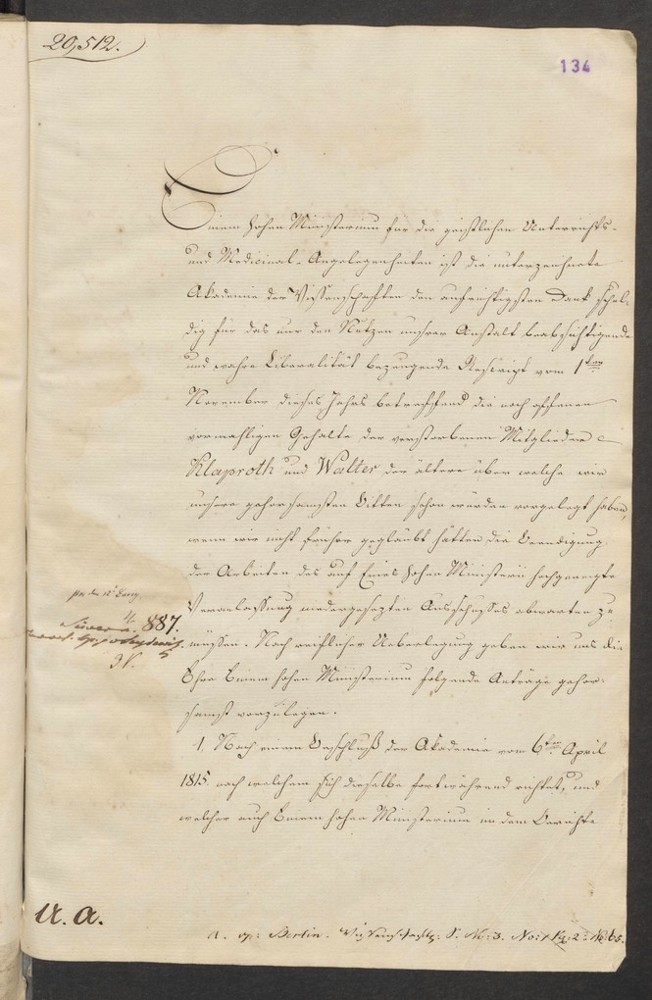 20,512.
134
Einem hohen Ministerium für die geistlichen Unterrichts-
und Medicinal-Angelegenheiten ist die unterzeichnete
Akademie der Wissenschaften den aufrichtigsten Dank schul-
dig für das nur den Nutzen unsrer Anstalt beabsichtigende
und wahre Liberalität bezeugende Rescript vom 1ten
November dieses Jahrs betreffend die noch offenen
vormahligen Gehalte der verstorbenen Mitglieder
Klaproth und Walter der ältere über welche wir
unsere gehorsamsten Bitten schon würden vorgelegt haben,
wenn wir nicht früher geglaubt hätten die Beendigung
der Arbeiten des auf Eines hohen Ministerii hochgeneigte
Veranlassung niedergesezten Ausschusses abwarten zu
müssen. Nach reiflicher Ueberlegung geben wir uns die
Ehre Einem hohen Ministerium folgende Anträge gehor-
samst vorzulegen.
1. Nach einem Beschluß der Akademie vom 6ten April
1815 nach welchem sich dieselbe fortwährend richtet, und
welcher auch Einem hohen Ministerium in dem Berichte
887.
U. a.
Berlin. Wissenschaftl: S. No: 3.